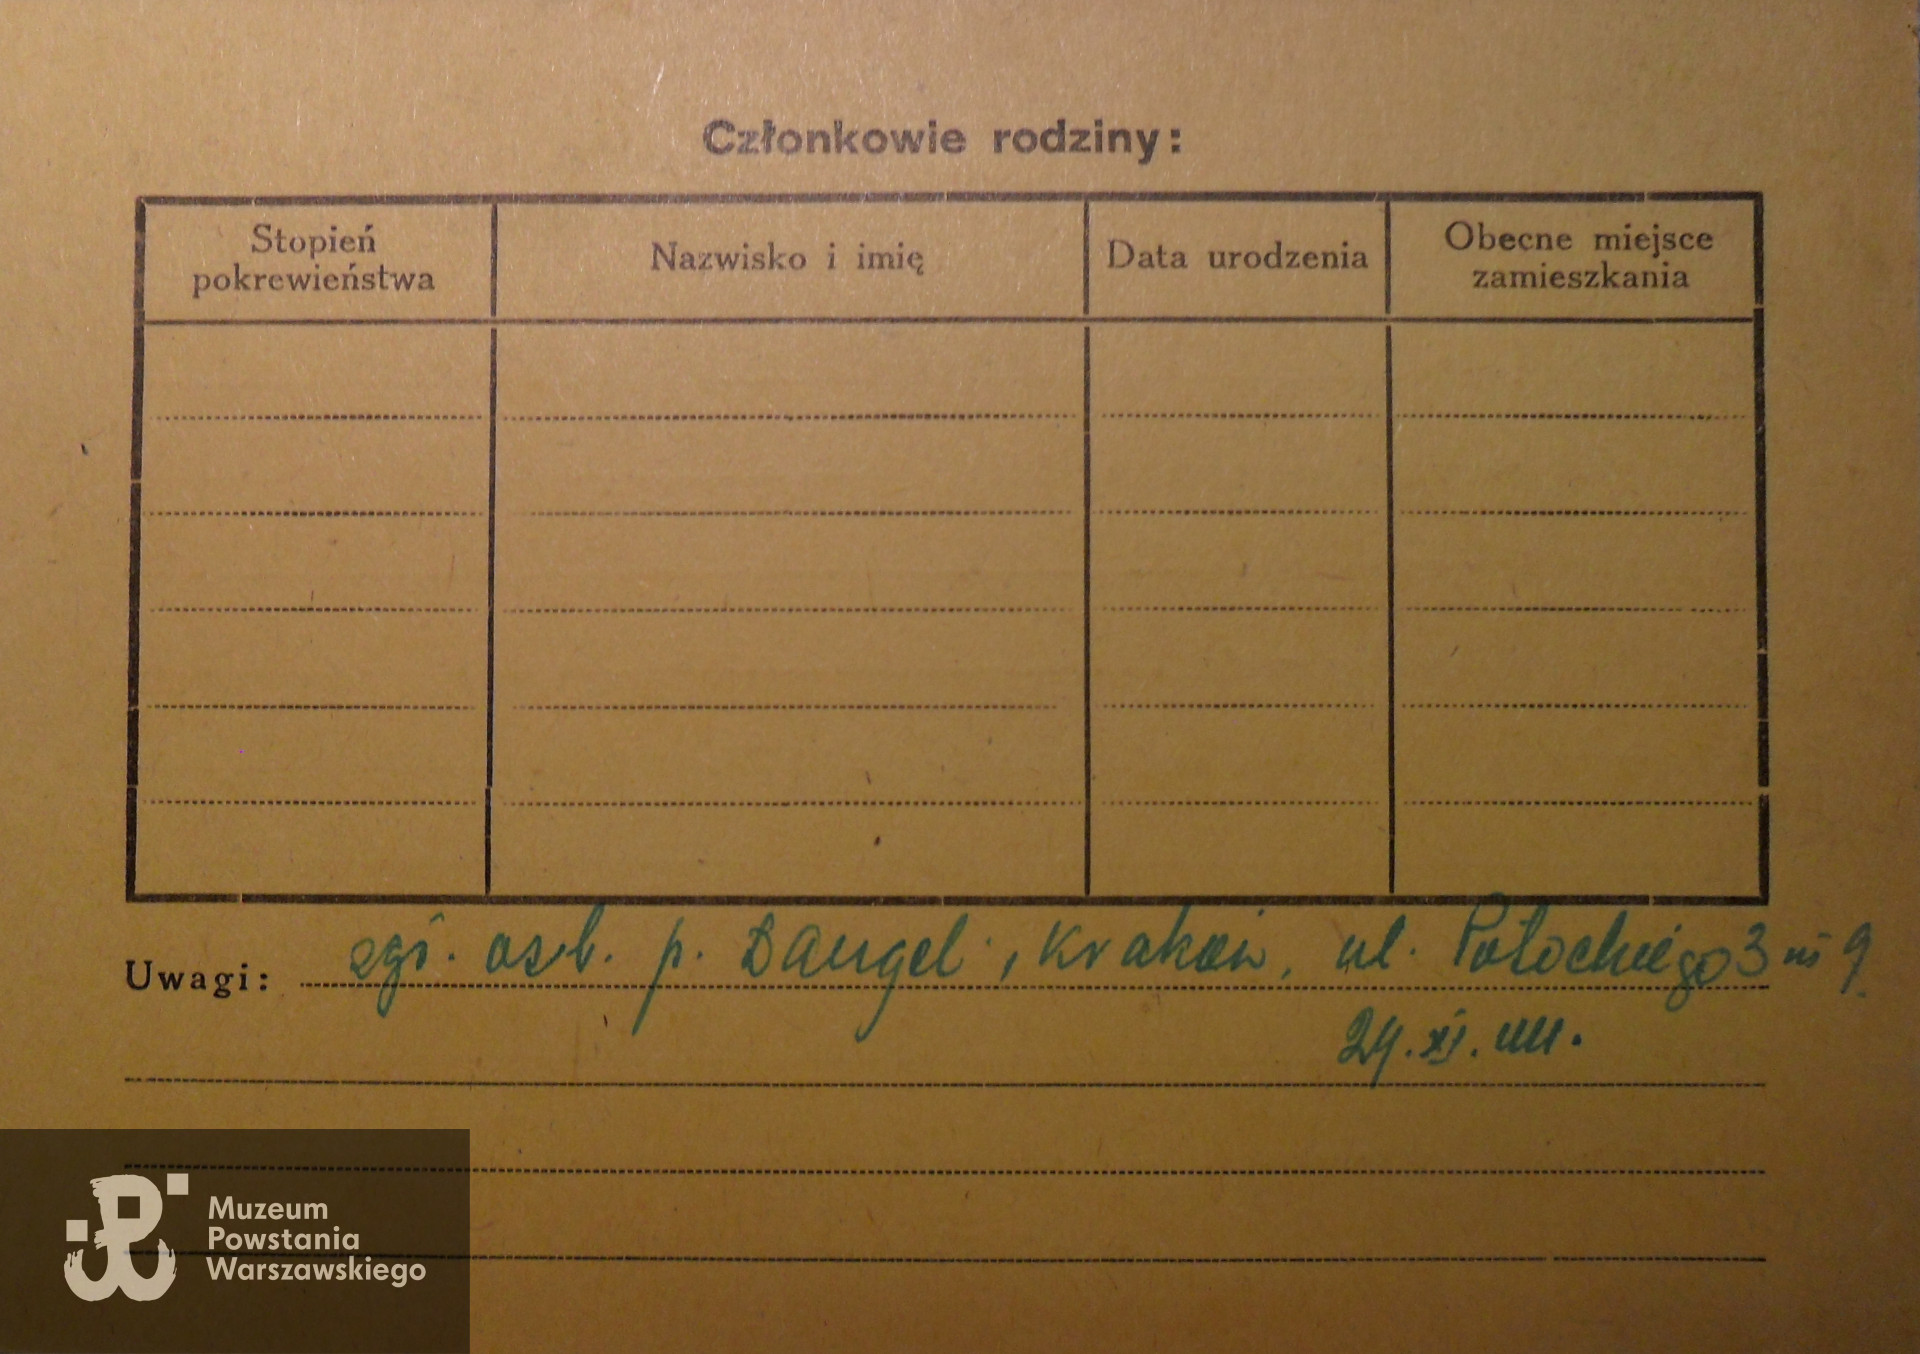 Członkowie rodziny:
Stopień
pokrewieństwa
Nazwisko i imię
Data urodzenia
Obecne miejsce
zamieszkania
Uwagi: zgł. osob. p. Dangel, Kraków, ul. Potockiego 3 m 9
XI.
Muzeum
Powstania
Warszawskiego